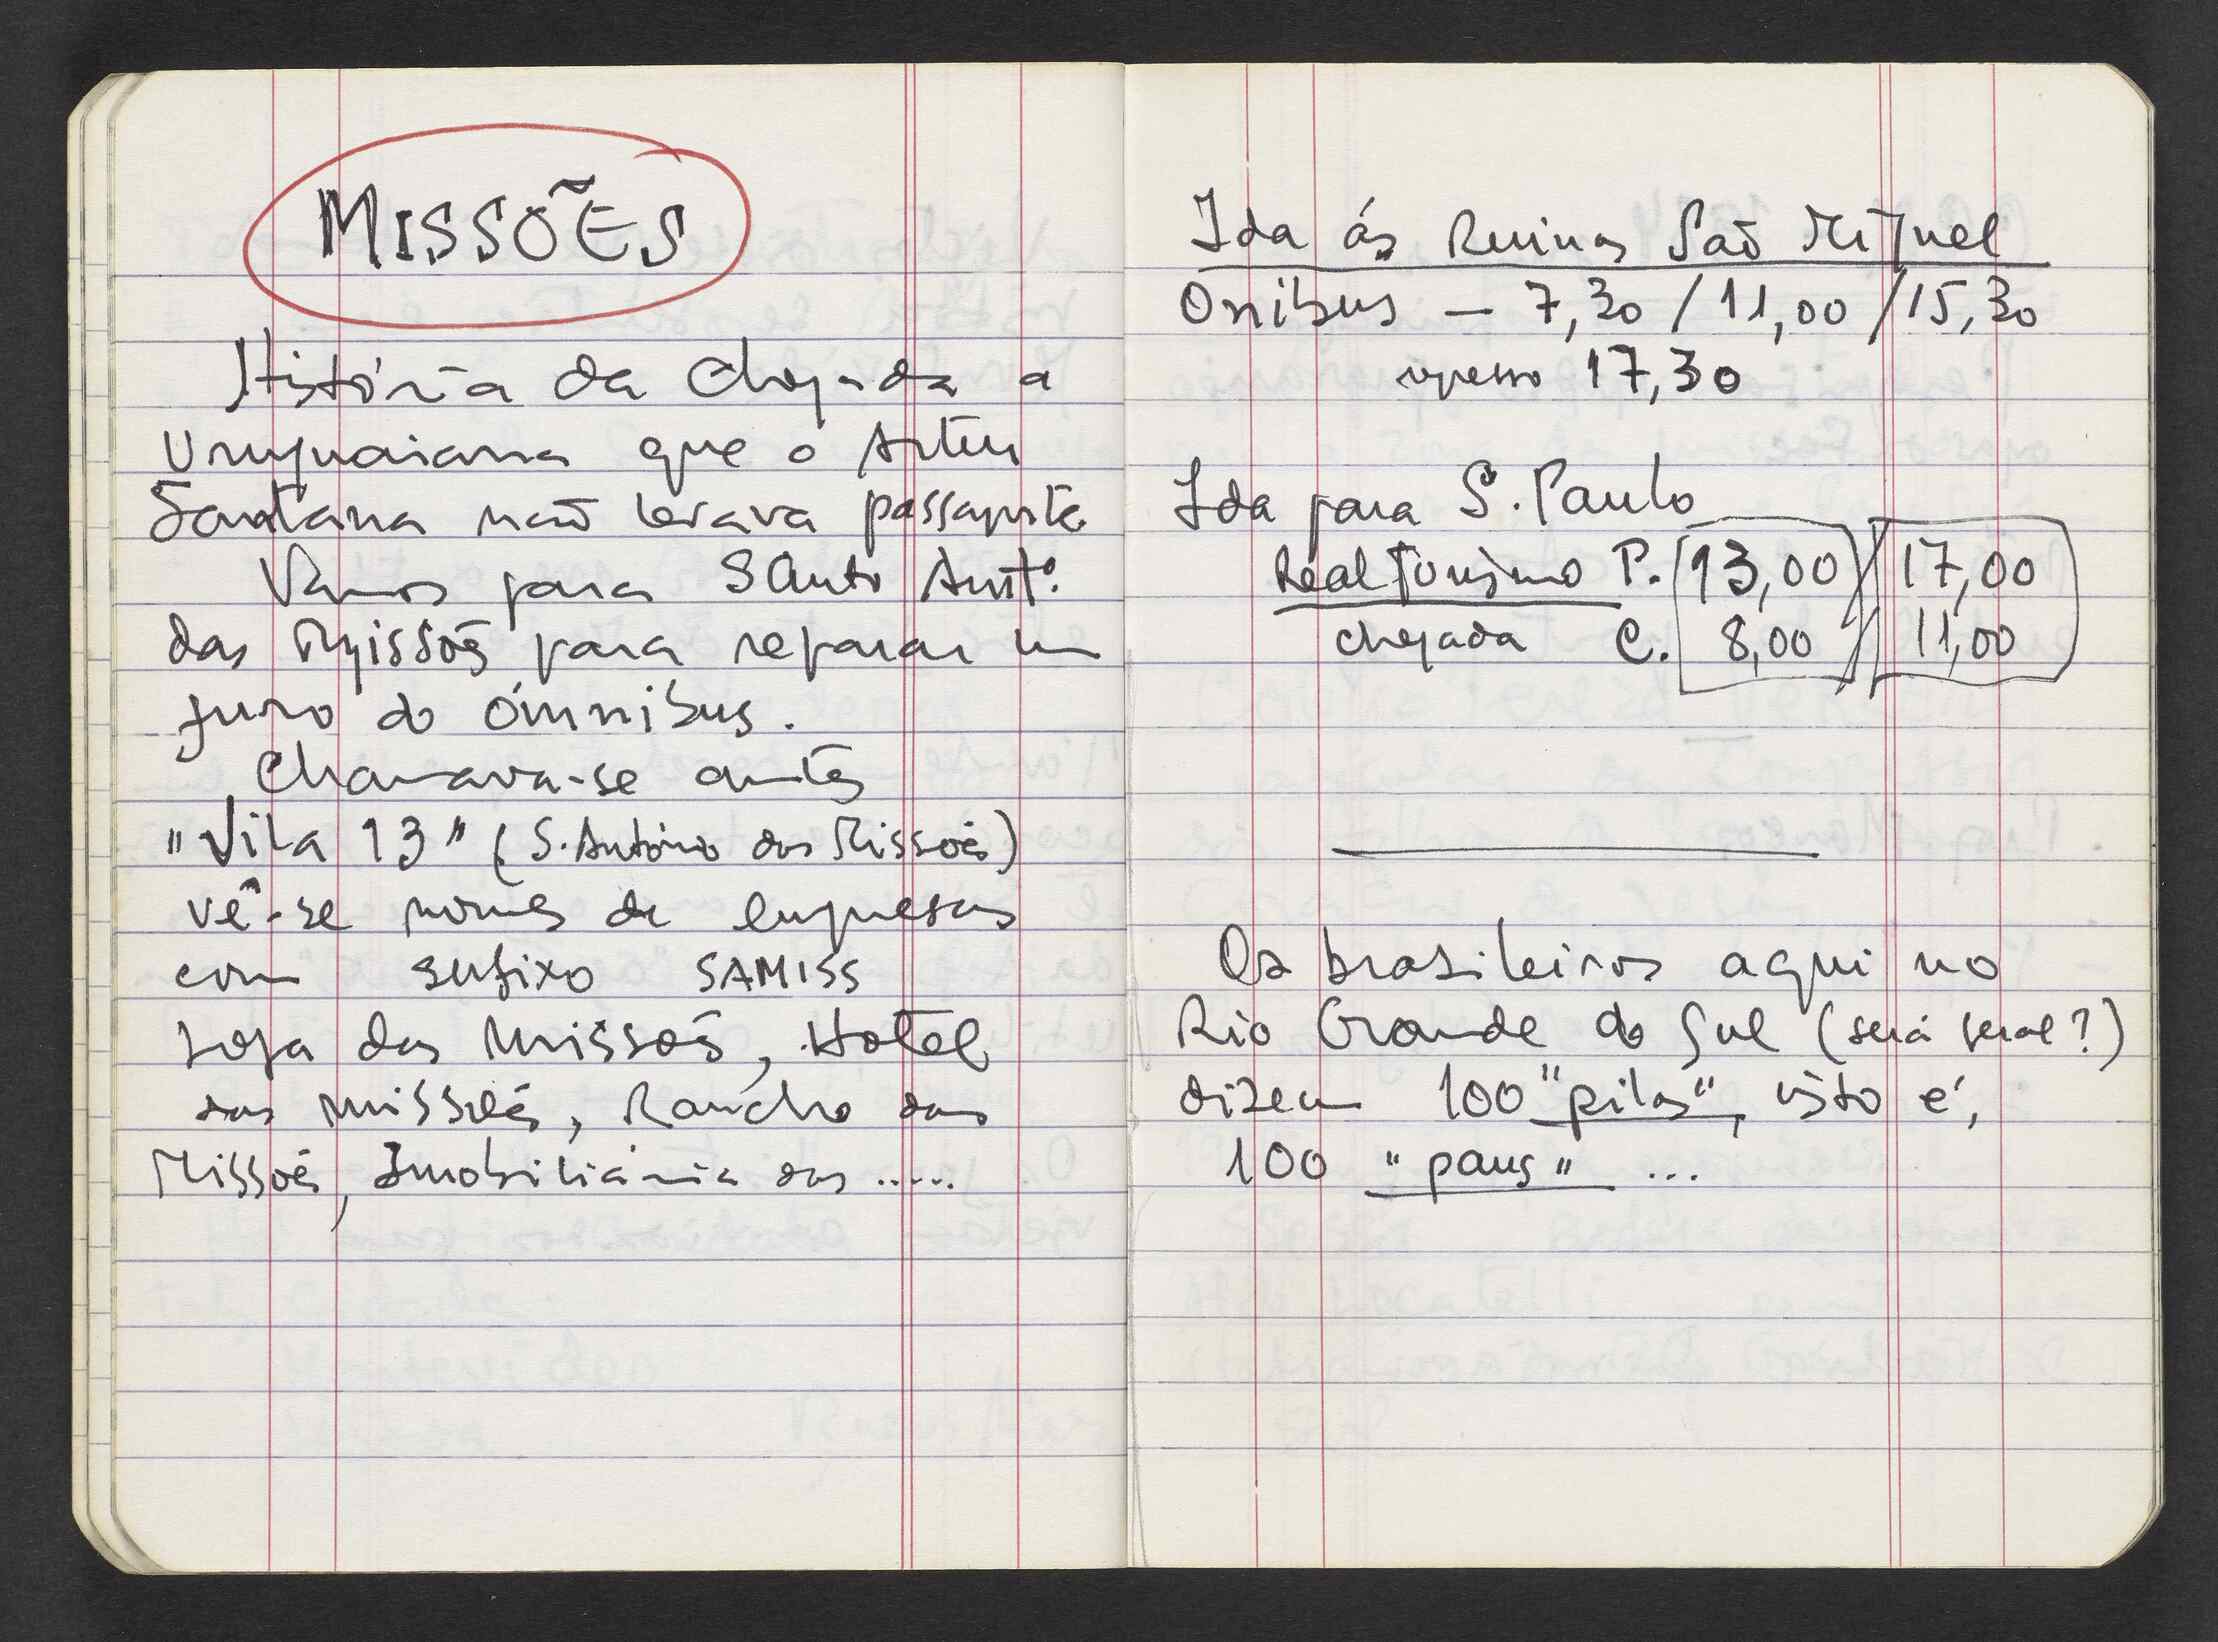 MISSÕES
História da chegada a
Uruguaiana que o Artur
Santana não levava passaporte
Vamos para Santo Antº.
das Missões para reparar um
furo do ómnibus.
Chamava-se antes
"Vila 13" (S. António das Missões)
vê-se nomes de empresas
com sufixo SAMISS
Loja das Missões, Hotel
das Missões, Rancho das
Missões, Imobiliária das .....
Ida ás Ruinas São Miguel
Onibus — 7,30 / 11,00 / 15,30
regresso 17,30
Ida para S. Paulo
Real Turismo P. 13,00 / 17,00
chegada C. 8,00 / 11,00
Os brasileiros aqui no
Rio Grande do Sul (será geral?)
dizem 100 "pilas", isto é,
100 "paus" ...